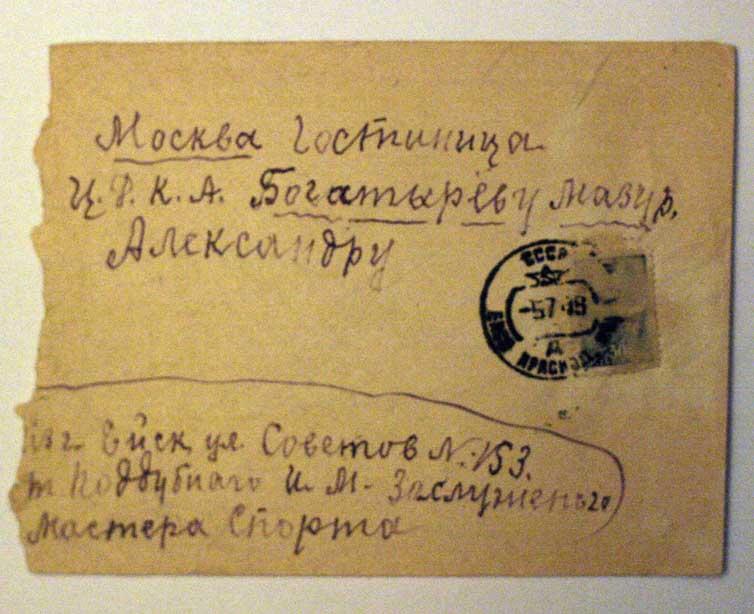 Москва Гостиница
Ц.Д.К.А. Богатырёву Мазур,
Александру
СССР
-5.7.48
Д
КРАСНОД
г. Ейск ул Советов N. 153.
т Поддубнаго И. М. Заслуженнго
мастера Спорта